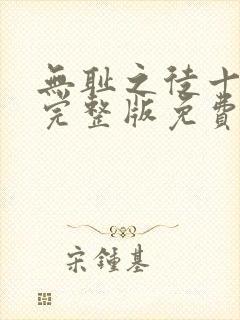 無耻之徒十
完整版免費
宋鍾基